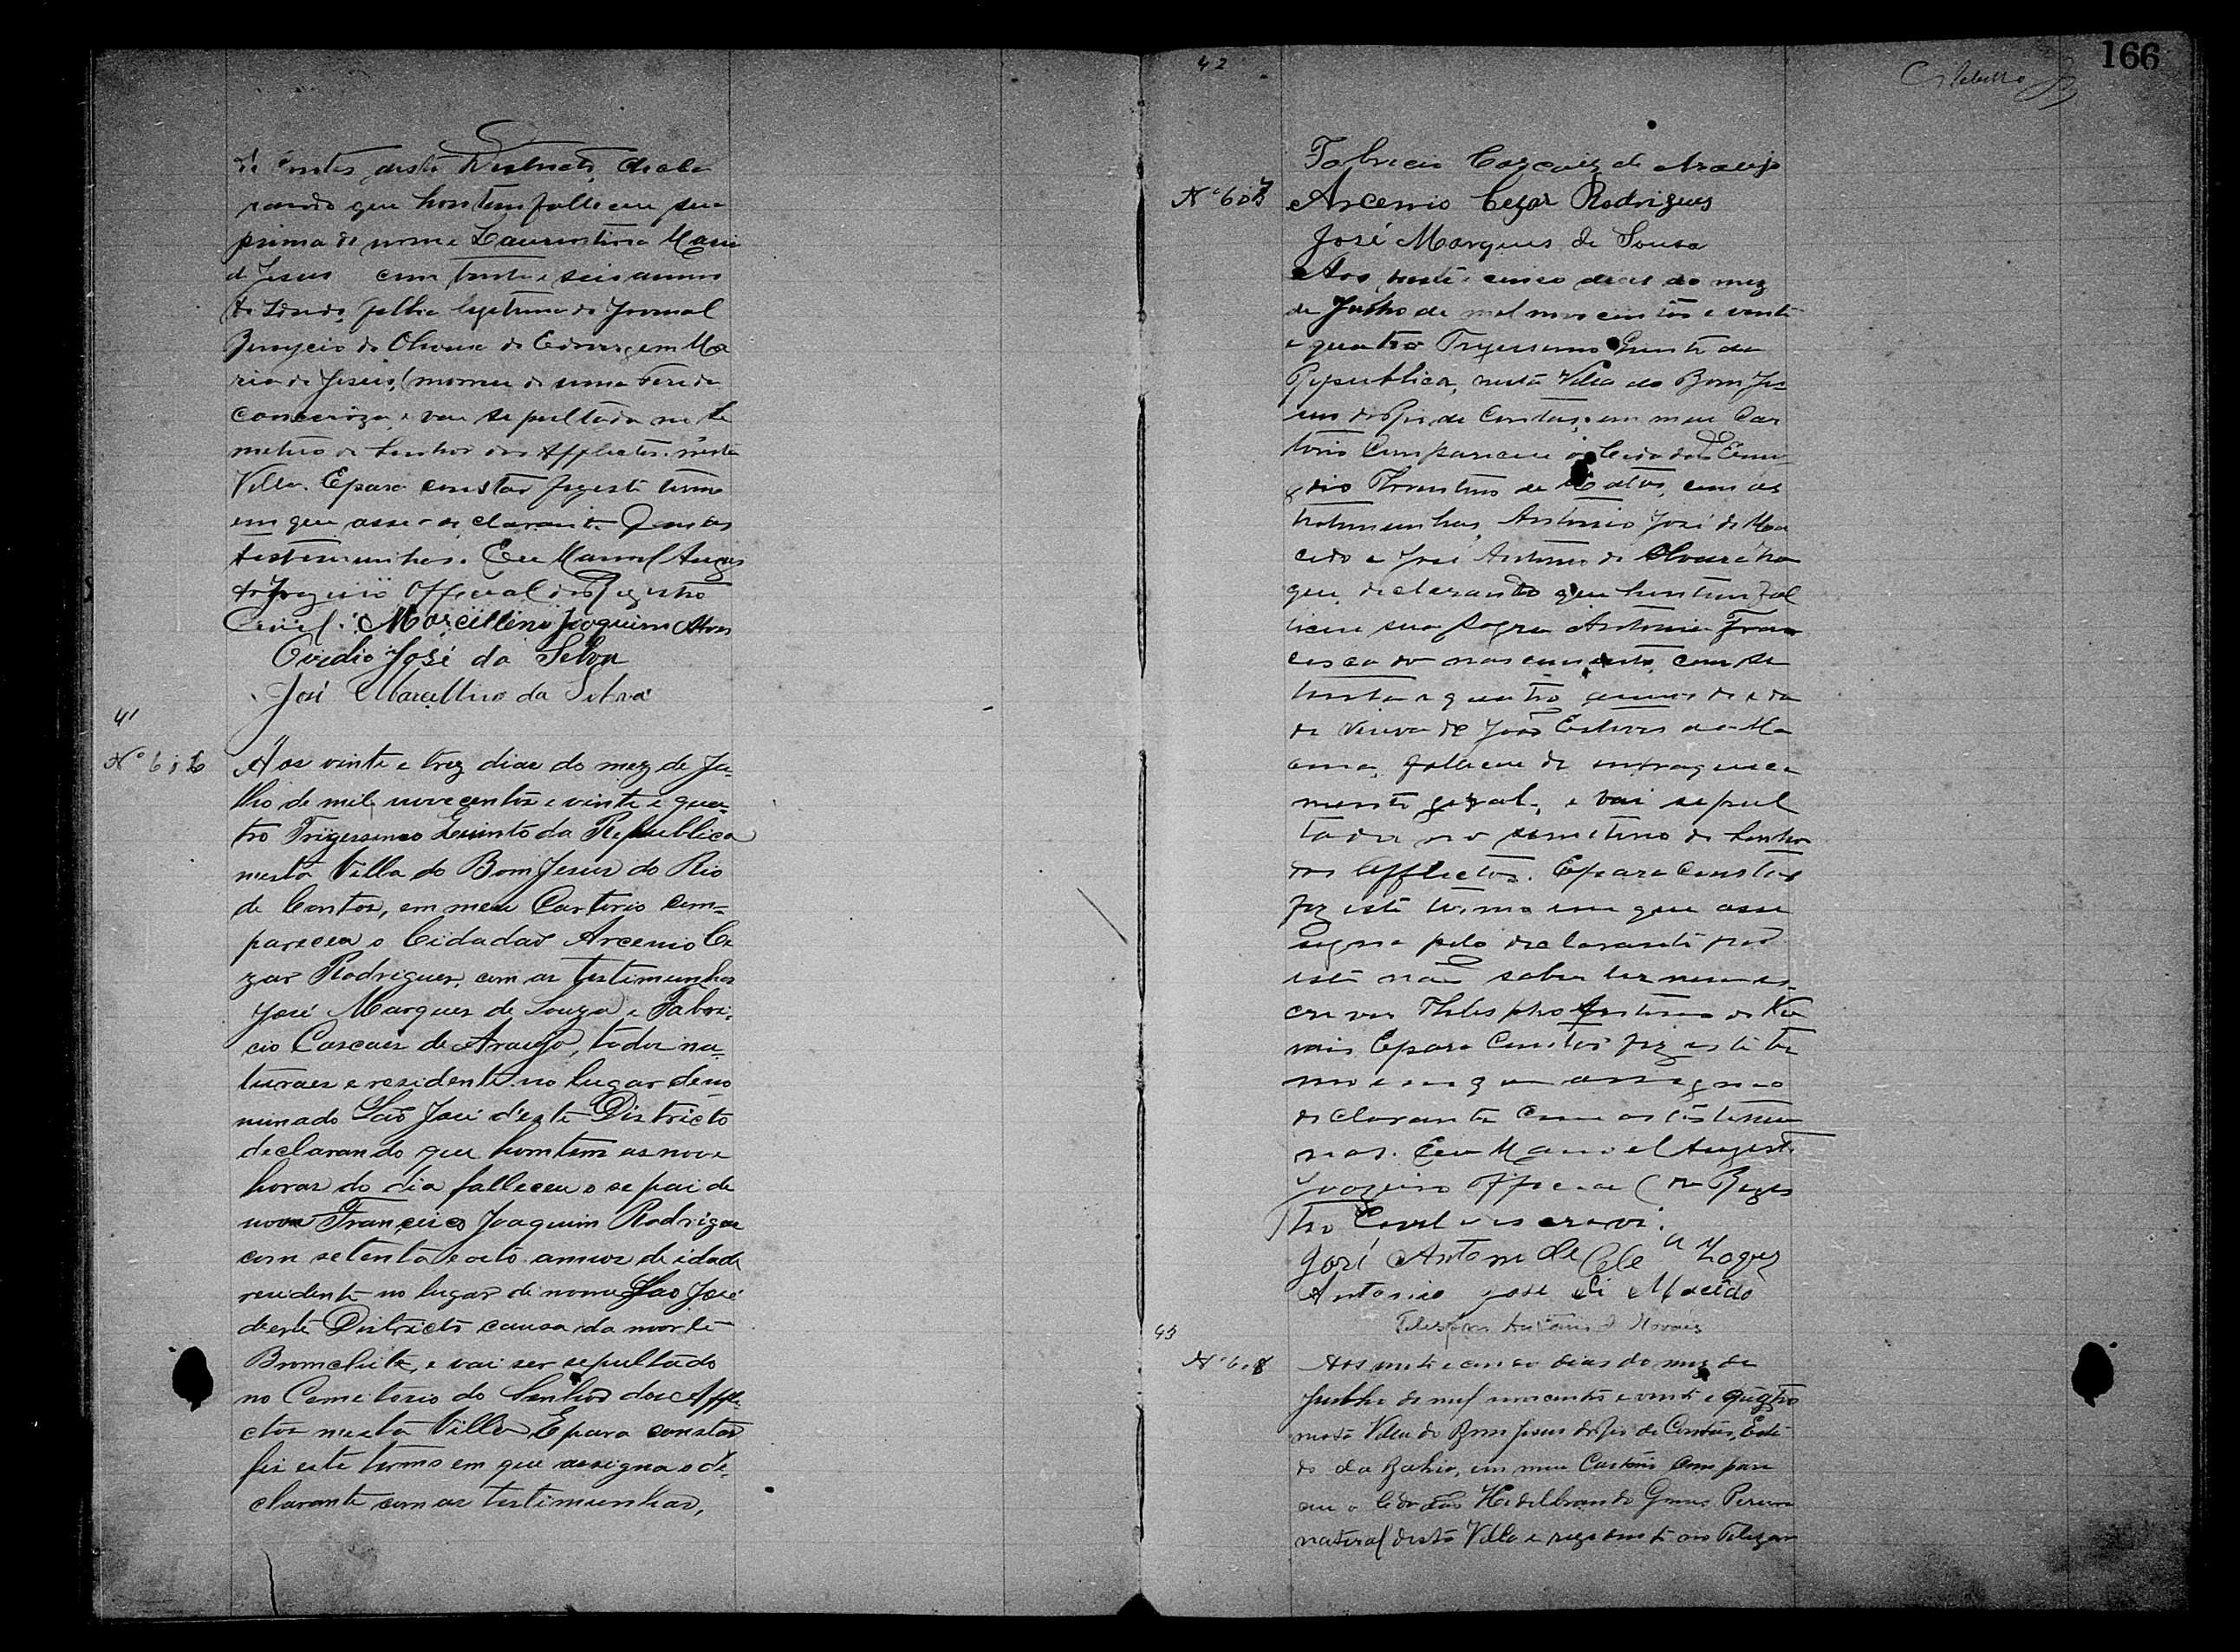 de Contas deste Districto, decla
rando que hontem falleceu sua
prima de nome Laurentina Maria
de Jesus com trinta e seis annos
de Idade, filha legitima de
de Oliveira de Ma
ria de Jesus, morreu de uma ferida
cancerosa e vai sepultada no Ce
meterio do Senhor dos Afflictos nesta
Villa. E para constar fiz este termo
em que assi o declarante e as
testemunhas. Eu Manoel Augus
to Joazeiro Official do Registro
Civil. Marcellino Joaquim Alves
Ovidio José da Silva
José Marcellino da Silva
41
Nº 616
Aos vinte e trez dias do mez de Ju=
lho de mil novecentos e vinte e qua=
tro Trigessimo Quinto da Republica
nesta Villa do Bom Jesus do Rio
de Contas, em meu Cartorio com=
pareceu o Cidadão Arcenio Ce
zar Rodrigues, com as testimunhas
José Marques de Souza e Fabri=
cio Cascaes de Araujo, todos na=
turaes e residente no lugar deno
minado São José d'este Districto
declarando que hontem as nove
horas do dia falleceu o se pai de
nome Francisco Joaquim Rodrigues
com setenta e oito annos de idade
residente no lugar de nome São José
deste Districto causa da morte
Bromchite, e vai ser sepultado
no Cemeterio do Senhor dos Affli=
ctos nesta Villa E para constar
fiz este termo em que assigna o de=
clarante com as testimunhas,
42
166
Fabricio Cascaes de Araujo
Nº 617
Arcenio Cezar Rodrigues
José Marques de Sousa
Aos vinte e cinco dias do mez
de Julho de mil novecentos e vinte
e quatro Trigessimo Quinto da
Republica, nesta Villa do Bom Je=
sus do Rio de Contas, em meu Car
torio Compareceu o Cidadão
de Mattos, com as
testemunhas, Antonio José de Ma
cedo e José Antonio de Oliveira
que declarando que hontem fal
leceu sua sogra Antonia Fran
cisca do nascimento, com se
tenta e quatro annos de ida
de viuva de João Esteves
falleceu de enfraquece
mento geral, e vai sepul
tada no semiterio do Senhor
dos Afflictos. E para Constar
fiz este termo em que assi
signa pelo declarante por
este não saber ler nem es=
crever Thelesphoro Antonio de No
vais E para Constar fiz este ter
mo em que assigna o
declarante com as testemu
nas. Eu Manoel Augusto
Joazeiro Official do Regis
tro Civil o escrevi.
José Antoni de
Antonio José di Macêdo
Antonio de Novaes
43
Nº 618
Aos vinte e cinco dias do mez de
Julho de mil novecentos e vinte e quatro
nesta Villa do Bom Jesus do Rio de Contas, Esta
do da Bahia, em meu Cartorio compare
ceu o Cidadão Hidelbrando Gomes Pereira
natural desta Villa e rezidente no